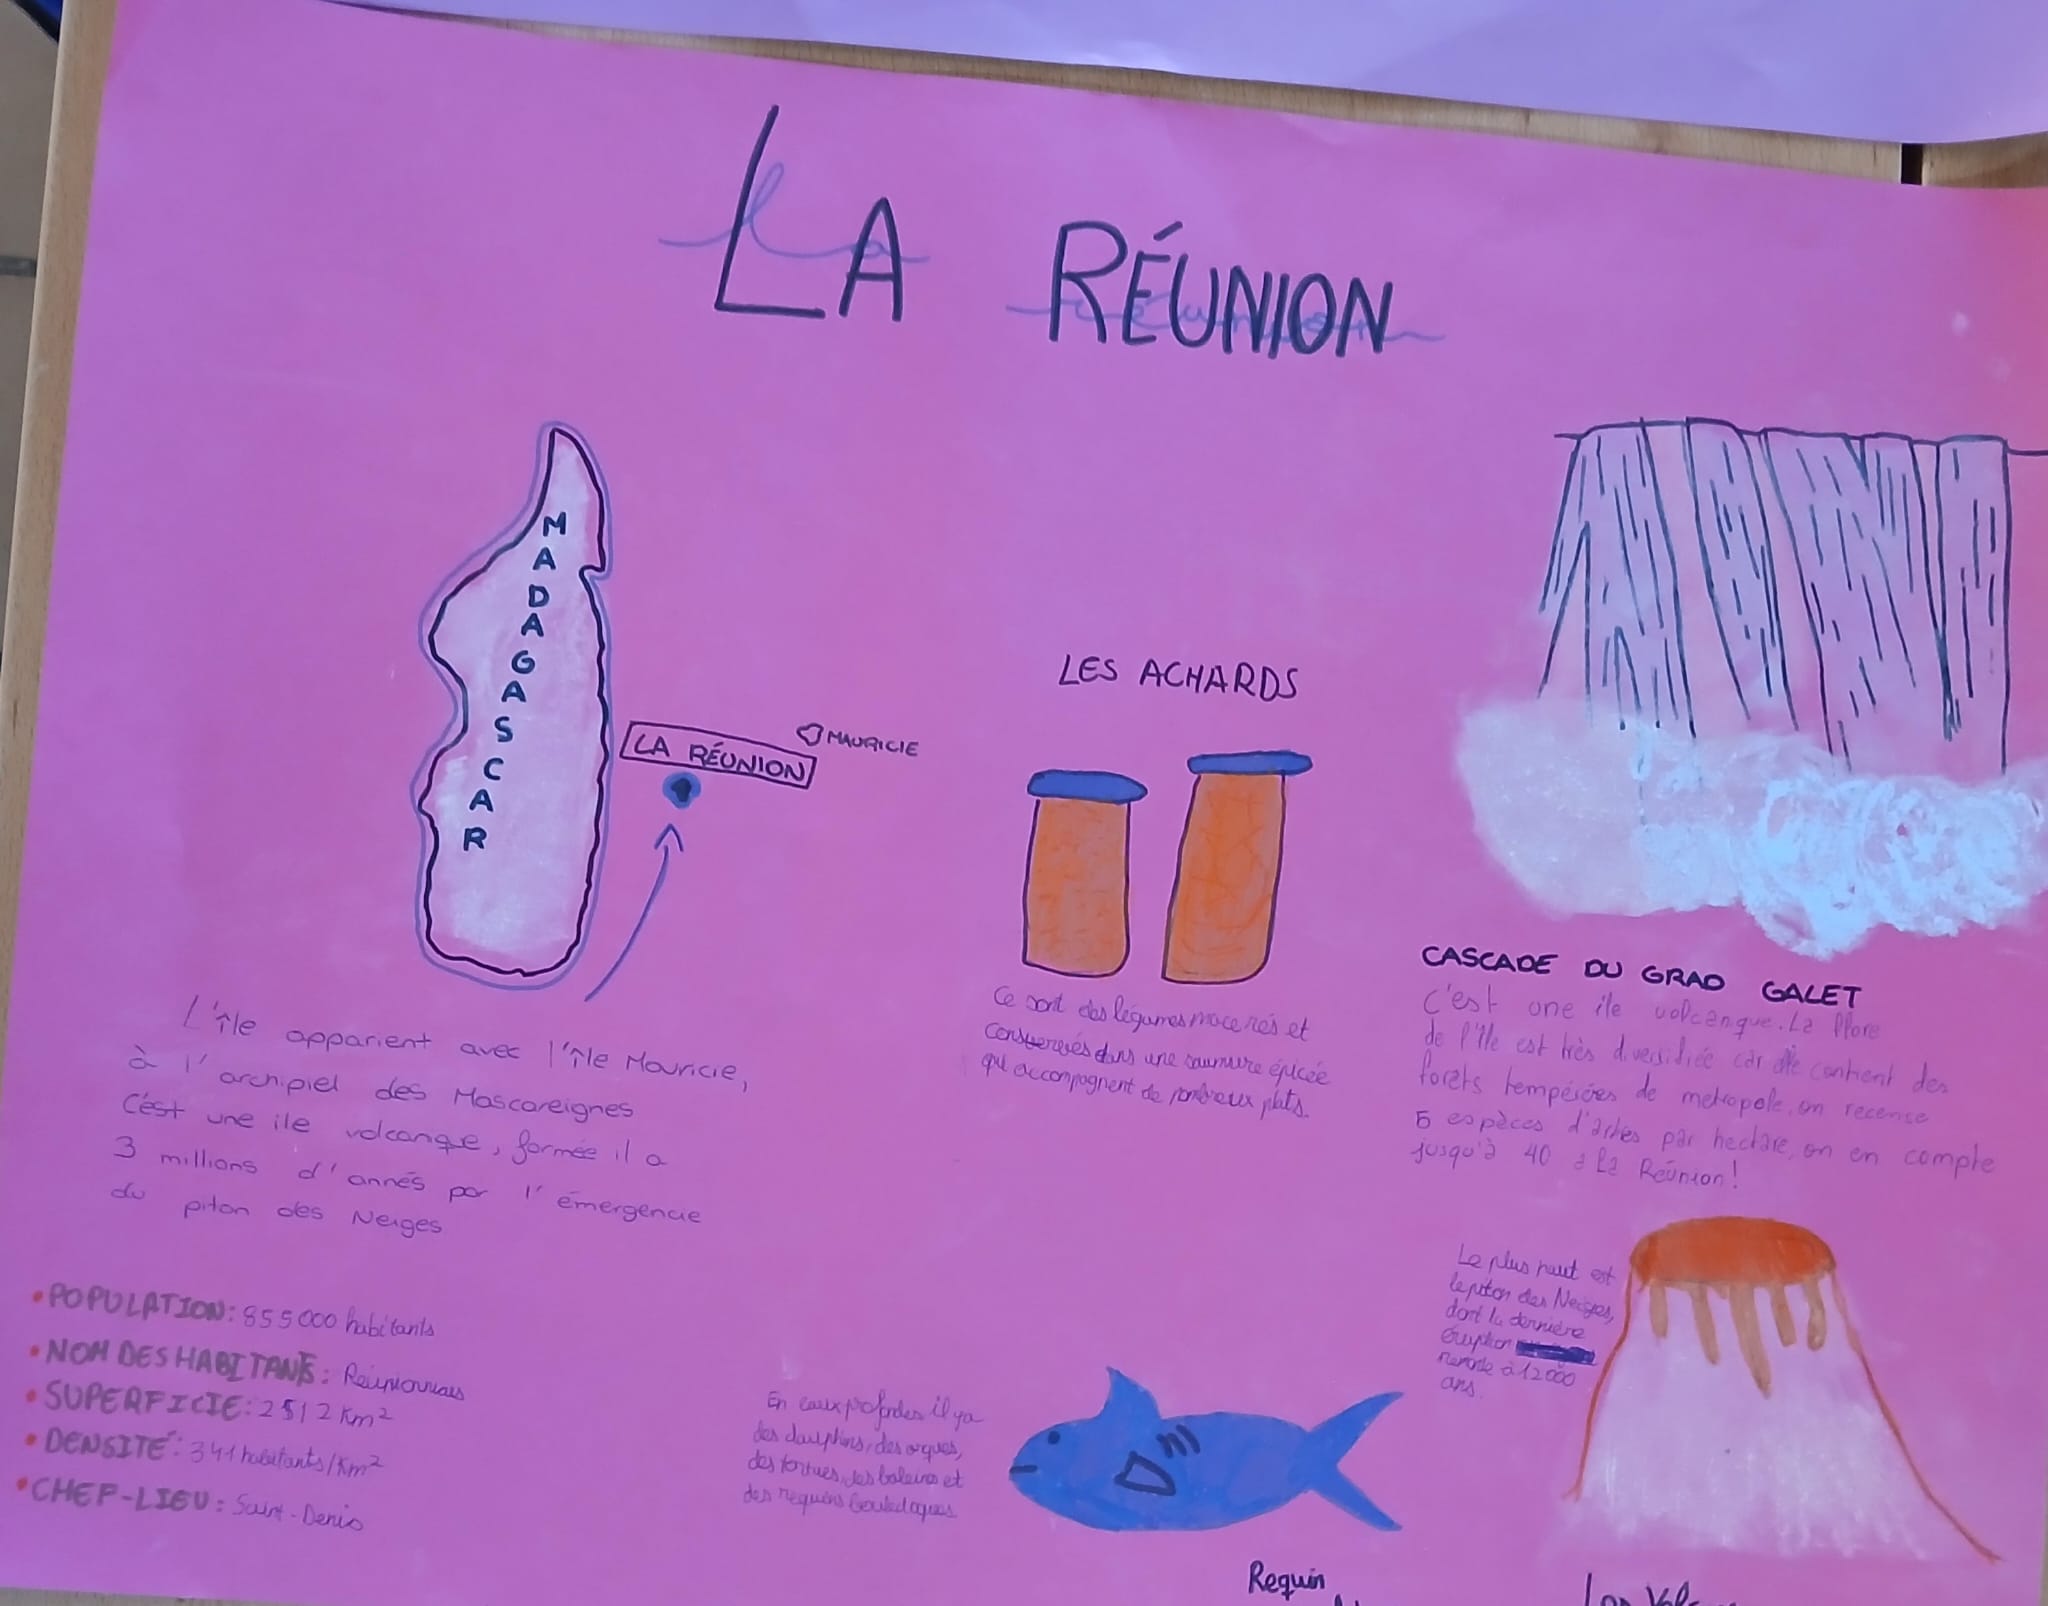 LA RÉUNION
MADAGASCAR
LA RÉUNION
MAURICIE
L'île apparient avec l'île Mouricie,
à l'archipiel des Mascareignes
C'ést une ile volcanque, formée il a
3 millions d'annés par l'émergencie
du piton des Neiges
• POPULATION: 855000 habitants
• NOM DES HABITANTS: Réunionnais
• SUPERFICIE: 2512 Km²
• DENSITÉ: 341 habitants/Km²
• CHEF-LIEU: Saint-Denis
LES ACHARDS
Ce sont des légumes macerés et
conserevés dans une saumure épicée
qui accompagnent de nombreux plats.
CASCADE DU GRAD GALET
C'est une ile volcanque. La flore
de l'île est très diversifiée car elle contient des
forêts tempérées de metropole, on recense
5 espèces d'arbes par hectare, on en compte
jusqu'à 40 à La Réunion!
Le plus haut est
le piton des Neiges,
dont la dernière
éruption
remonte à 12000
ans.
En eaux profondes il ya
des dauphins, des orques,
des tortues, des baleines et
des requins bouledogues
Requin
Los